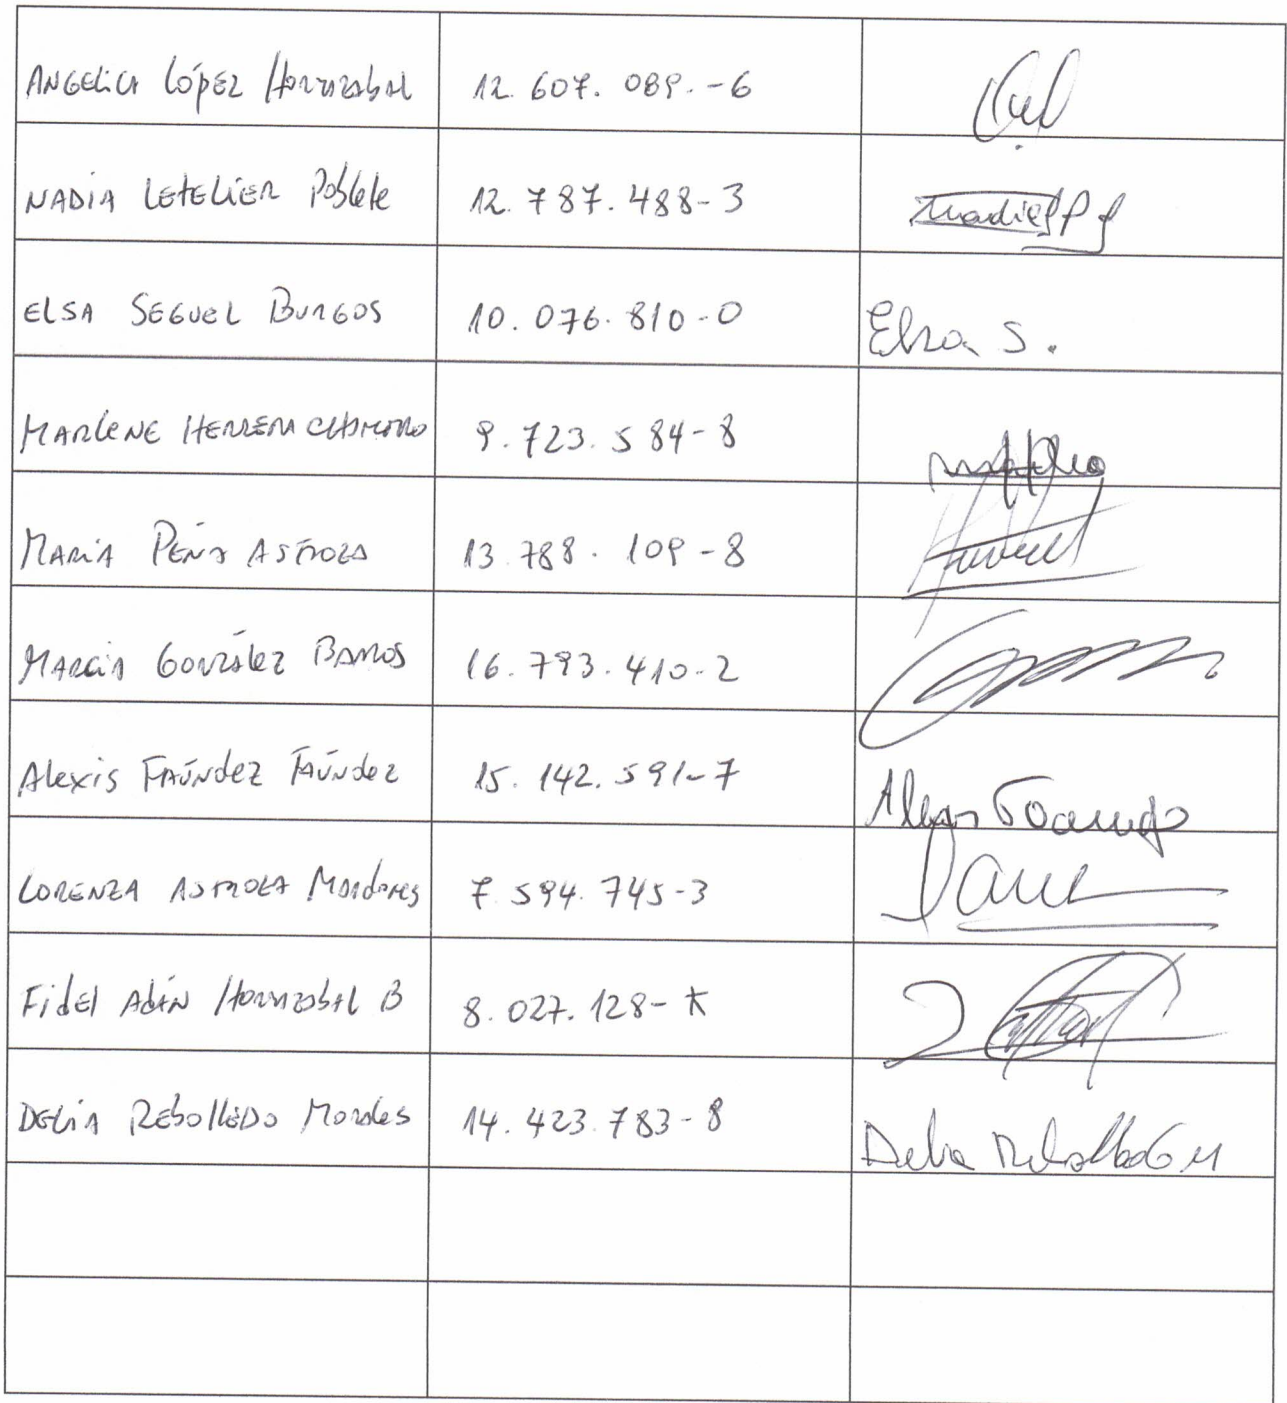 Angelica López Hormazabal 12.607.089.-6
Nadia Letelier Poblete 12.787.488-3
Elsa Seguel Burgos 10.076.810-0 Elsa S.
Marlene Herrera Chamorro 9.723.584-8
María Peña Astroza 13.788.109-8
Marcia González Barros 16.793.410-2
Alexis Faúndez Faúndez 15.142.591-7
Lorenza Astroza Mardones 7.594.745-3
Fidel Adán Hormazabal B 8.027.128-K
Delia Rebolledo Morales 14.423.783-8 Delia Rebolledo M